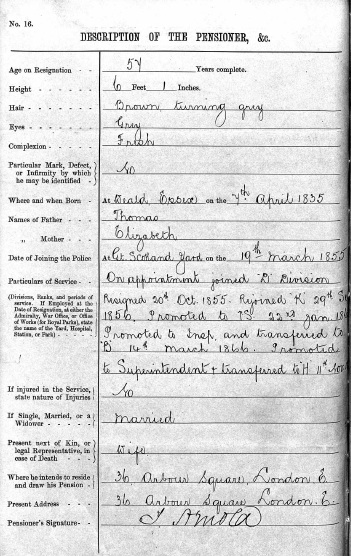 No. 16.
DESCRIPTION OF THE PENSIONER, &c.
Age on Resignation - - 57 Years complete.
Height - - - - - 6 Feet 1 Inches.
Hair - - - - - - Brown turning grey
Eyes - - - - - - Grey
Complexion - - - - Fresh
Particular Mark, Defect, or Infirmity by which he may be identified - - No
Where and when Born - - At Weald Essex on the 7th April 1835
Names of Father - - - Thomas
„ Mother - - - Elizabeth
Date of Joining the Police At Gt. Scotland Yard on the 19th March 1855
Particulars of Service - - On appointment joined 'B' Division
(Divisions, Ranks, and periods of service. If Employed at the Date of Resignation, at either the Admiralty, War Office, or Office of Works (for Royal Parks), state the name of the Yard, Hospital, Station, or Park)
Resigned 20th Oct. 1855. Rejoined K 29th
1856. Promoted to PS 22nd Jan.
Promoted to Insp. and transferred to
B 14th March 1866. Promoted
to Superintendent & transferred to H 11th Nov
If injured in the Service, state nature of Injuries No
If Single, Married, or a Widower - - - Married
Present next of Kin, or legal Representative, in case of Death - - Wife
Where he intends to reside and draw his Pension - 36 Arbour Square, London E
Present Address - - - 36 Arbour Square London. E.
Pensioner's Signature - - T Arnold